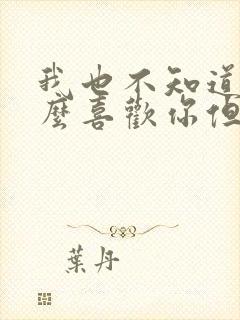 我也不知道
麼喜歡你但
葉丹